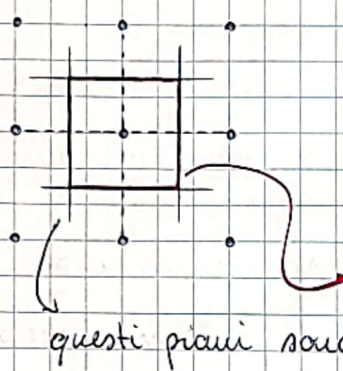 questi piani sono